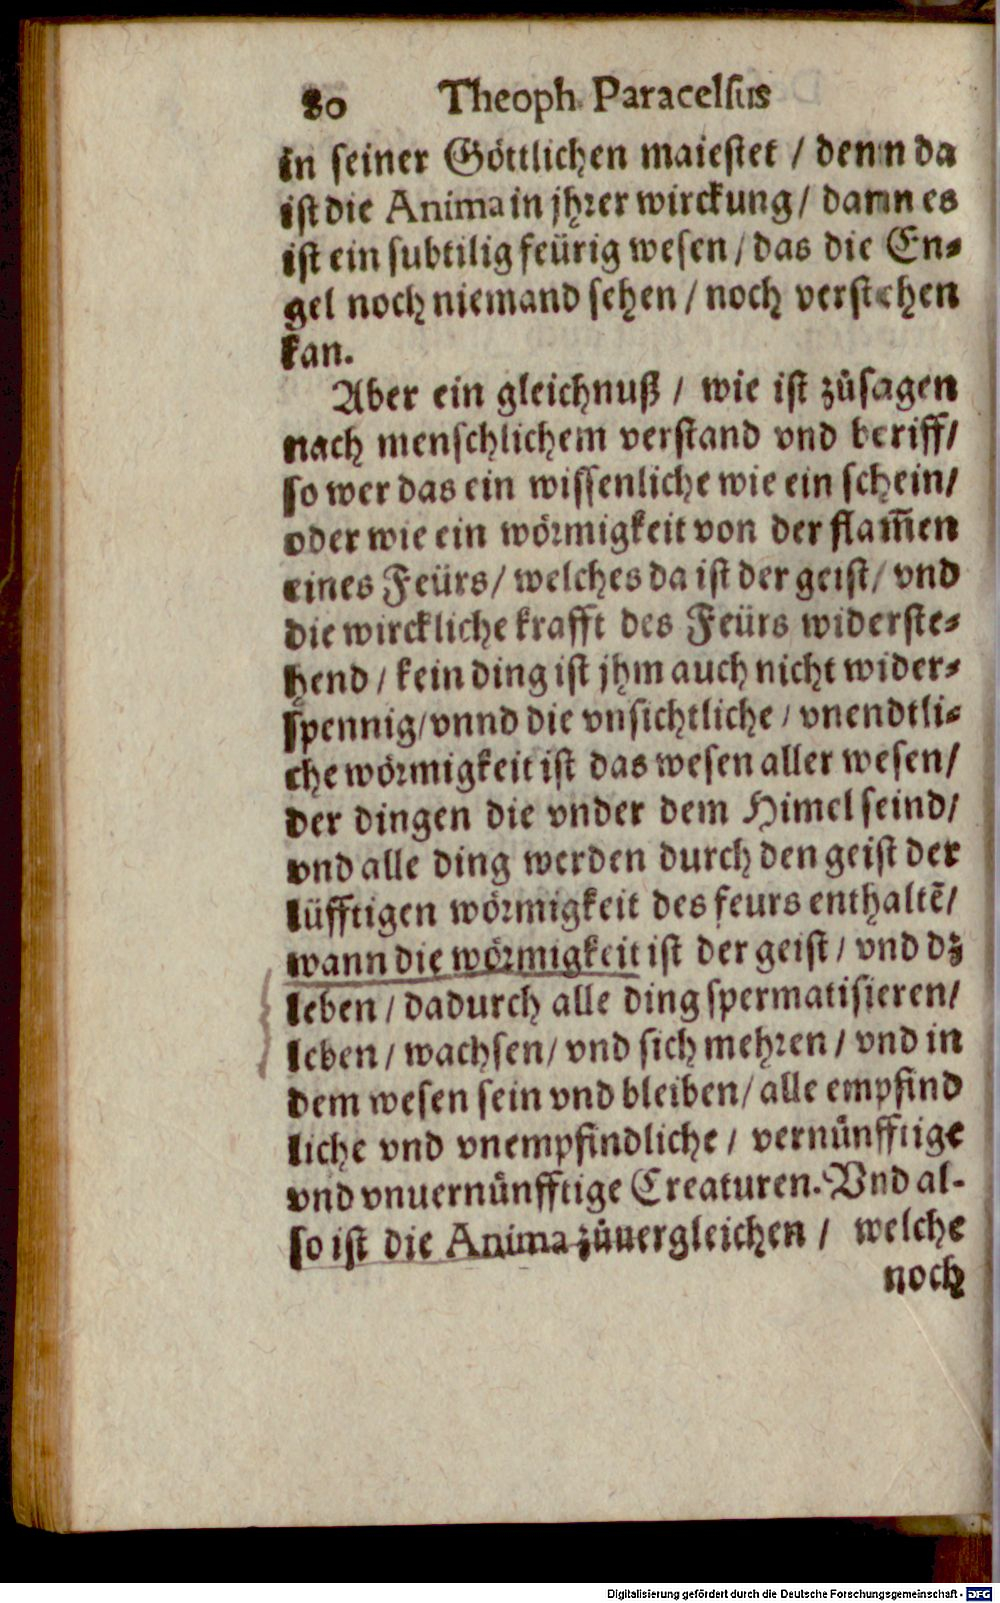 80 Theoph. Paracelsus
in seiner Göttlichen maiestet / denn da
ist die Anima in jhrer wirckung / dann es
ist ein subtilig feürig wesen / das die En-
gel noch niemand sehen / noch verstehen
kan.
Aber ein gleichnuß / wie ist zůsagen
nach menschlichem verstand vnd beriff /
so wer das ein wissenliche wie ein schein /
oder wie ein wörmigkeit von der flam̃en
eines Feürs / welches da ist der geist / vnd
die wirckliche krafft des Feürs widerste-
hend / kein ding ist jhm auch nicht wider-
spennig / vnnd die vnsichtliche / vnendtli-
che wörmigkeit ist das wesen aller wesen /
der dingen die vnder dem Himel seind /
vnd alle ding werden durch den geist der
lüfftigen wörmigkeit des feurs enthaltẽ /
wann die wörmigkeit ist der geist / vnd dz
leben / dadurch alle ding spermatisieren /
leben / wachsen / vnd sich mehren / vnd in
dem wesen sein vnd bleiben / alle empfind
liche vnd vnempfindliche / vernünfftige
vnd vnuernünfftige Creaturen. Vnd al-
so ist die Anima zůuergleichen / welche
noch
Digitalisierung gefördert durch die Deutsche Forschungsgemeinschaft - DFG